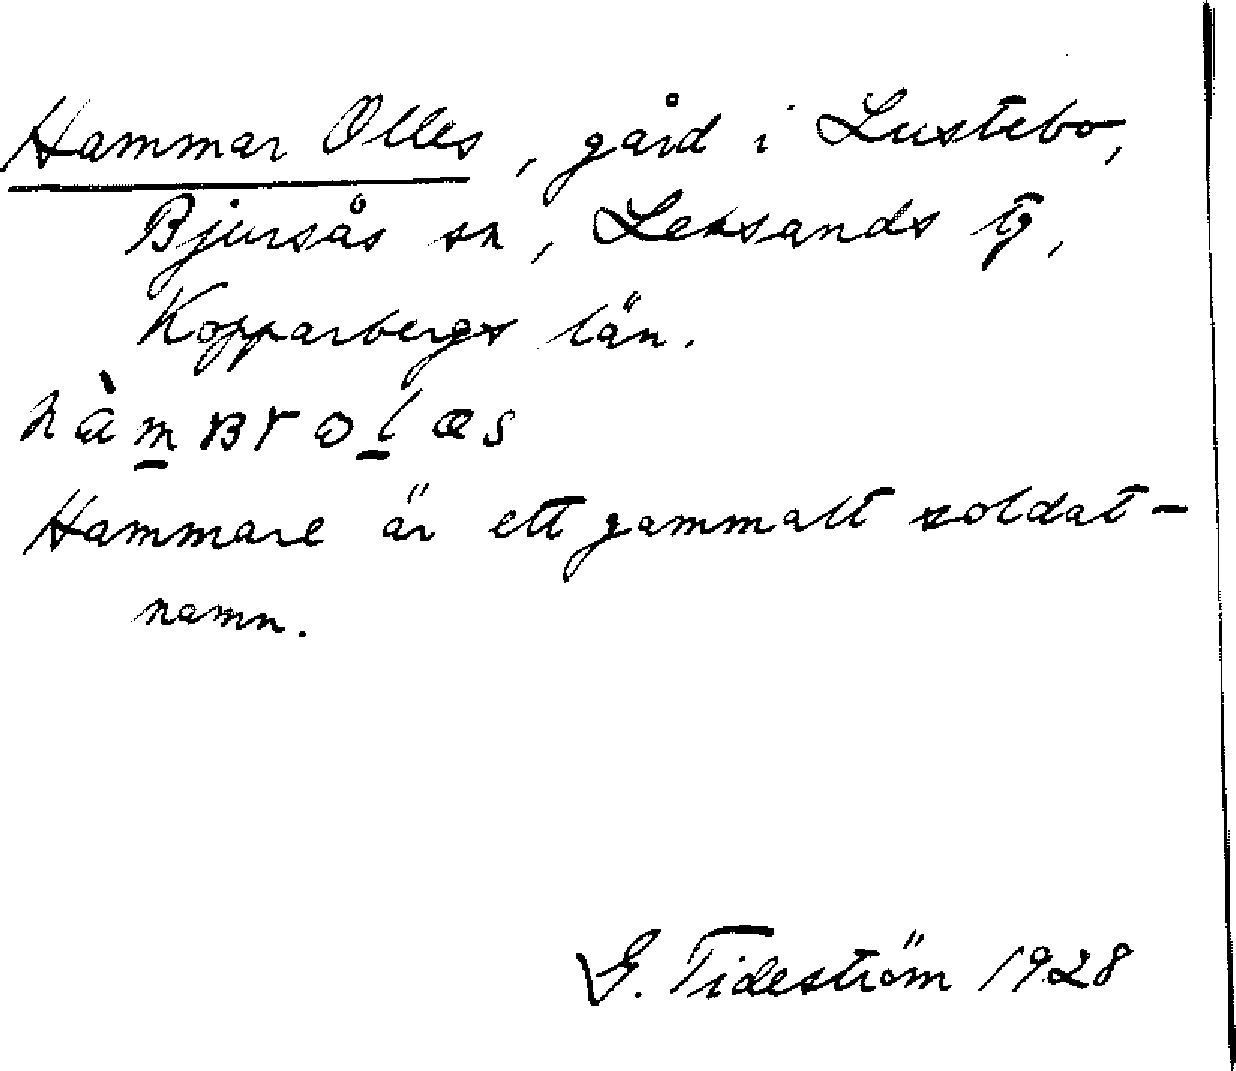 Hammar Olles, gård i Lustebo,
Bjursås sn, Leksands tg,
Kopparbergs län.
hàmʙrolæs
Hammare är ett gammalt soldat-
namn.
G. Tideström 1928